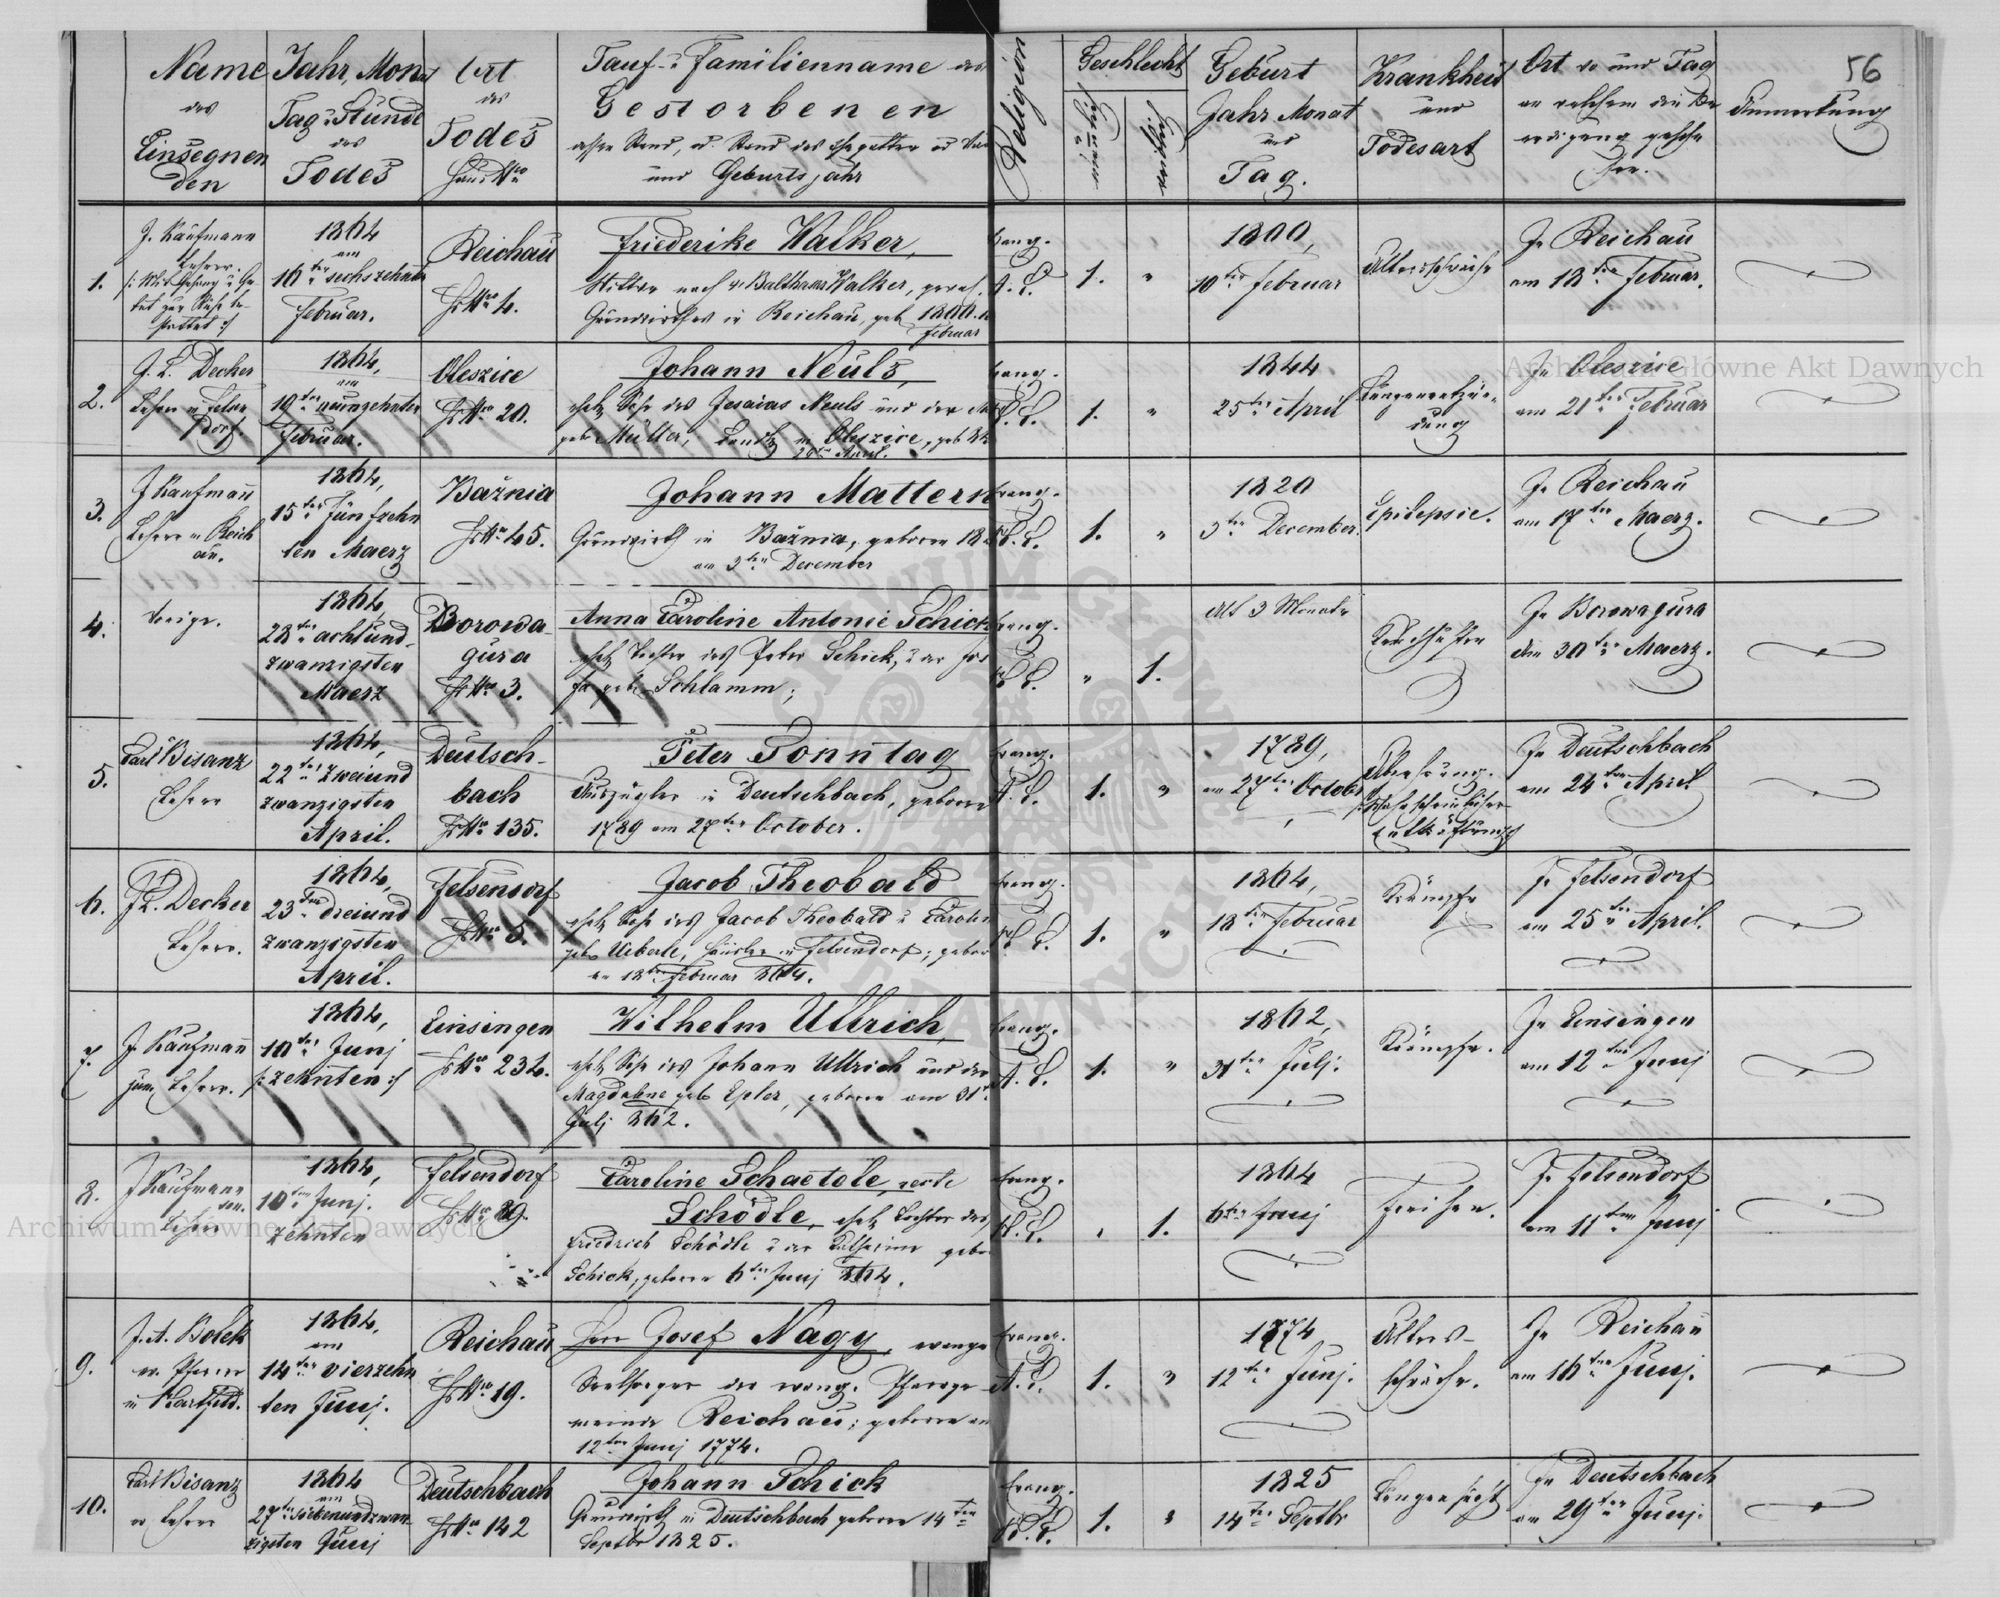 Name
des
Einsegnen
den
Jahr, Monat
Tag u. Stunde
des
Todes
Ort
des
Todes
Haus Nro
Tauf- u. Familienname des
Gestorbenen
dessen Stand, u. Stand des Ehegatten od
und Geburtsjahr
Religion
Geschlecht
Geburt
Jahr Monat
und
Tag.
Krankheit
und
Todesart
Ort wo und Tag
an welchem die Be
erdigung geschehen.
Anmerkung
56
1.
J. Kaufmann
Lehrer.
1864
am
16ten sechszehnten
Februar.
Reichau
Hs Nro 4.
Friederike Walker,
Wittwe nach Balthasar Walker, gewes.
Grundwirthes in Reichau, geb 1800.
Februar
Evang.
A. C.
1. "
1800,
10ten Februar
Altersschwäche
In Reichau
am 18ten Februar.
2.
J. L. Decker
Lehrer in Felsen
dorf.
1864,
am
19ten neunzehnten
Februar.
Oleszice
Hs Nro 20.
Johann Neuls,
ehel. Sohn des Jesaias Neuls und der
geb Müller, in Oleszice, geb
Evang.
H. C.
1. "
1844
25ten April
Lungenentzün-
dung
In Oleszice
am 21ten Februar
3.
J Kaufmann
Lehrer in Reich
au.
1864,
15ten Fünfzehn
ten Maerz
Bažnia
Hs Nro 45.
Johann Mattern
Grundwirth in Bažnia, geboren 18
am 3ten December
Evang.
H. C.
1. "
1820
3ten December.
Epilepsie.
In Reichau
am 17ten Maerz.
4.
Voriger.
1864,
28ten achtund-
zwanzigsten
Maerz
Borowa-
gura
Hs Nro 3.
Anna Caroline Antonie Schick
ehel. Tochter des Peter Schick, u. der
geb. Schlamm;
Evang.
H. C.
" 1.
Alt 3 Monate
Keuchhusten
In Borowagura
den 30ten Maerz.
5.
Carl Bisanz
Lehrer
1864,
22ten zweiund
zwanzigsten
April.
Deutsch-
bach
Hs Nro 135.
Peter Sonntag
Auszügler in Deutschbach, geboren
1789 am 27ten October.
Evang.
A. C.
1. "
1789,
am 27ten October
Abzehrung.
In Deutschbach
am 24ten April
6.
J L. Decker
Lehrer.
1864,
23ten dreiund
zwanzigsten
April.
Felsendorf
Hs Nro 5.
Jacob Theobald
ehel. Sohn des Jacob Theobald u. Carolin
geb. Ueberle, Häusler in Felsendorf; gebor
am 18ten Februar 864.
Evang.
H. C.
1. "
1864,
18ten Februar
Krämpfe
In Felsendorf
am 25ten April.
7.
J. Kaufmann
jun. Lehrer.
1864,
10ten Junj
/: zehnten :/
Einsingen
Hs Nro 234.
Wilhelm Ullrich,
ehel. Sohn des Johann Ullrich und der
Magdalene geb Epler, geboren am 31t
Julj 862.
Evang.
A. C.
1. "
1862,
31ten Julj.
Krämpfe.
In Einsingen
am 12ten Junj
8.
J Kaufmann
sen.
Lehrer
1864,
10ten Junj.
zehnten
Felsendorf
Hs Nro 39.
Caroline Schaetole, recte
Schödle, ehel. Tochter des
Friedrich Schödle u. der geb.
Schick, geboren 6ten Junj 864.
Evang.
H. C.
" 1.
1864
6ten Junj
Fraisen.
In Felsendorf
am 11ten Junj
9.
J. A. Bolek
ev. Pfarrer
in Hartfeld.
1864,
am
14ten vierzehn
ten Junj.
Reichau
Hs Nro 19.
Herr Josef Nagy, evange
Seelsorger der evang. Pfarrge-
meinde Reichau; geboren am
12ten Junj 1774.
Evang.
A. C.
1. "
1774
12ten Junj.
Alters-
schwäche.
In Reichau
am 16ten Junj.
10.
Carl Bisanz
ev Lehrer
1864
am
27ten siebenundzwan-
zigsten Junj
Deutschbach
Hs Nro 142
Johann Schick
Grundwirth in Deutschbach geboren 14ten
Septbr 1825.
Evang.
H. C.
1. "
1825
14ten Septbr
Lungensucht
In Deutschbach
am 29ten Junj.
Archiwum Główne Akt Dawnych
Archiwum Główne Akt Dawnych